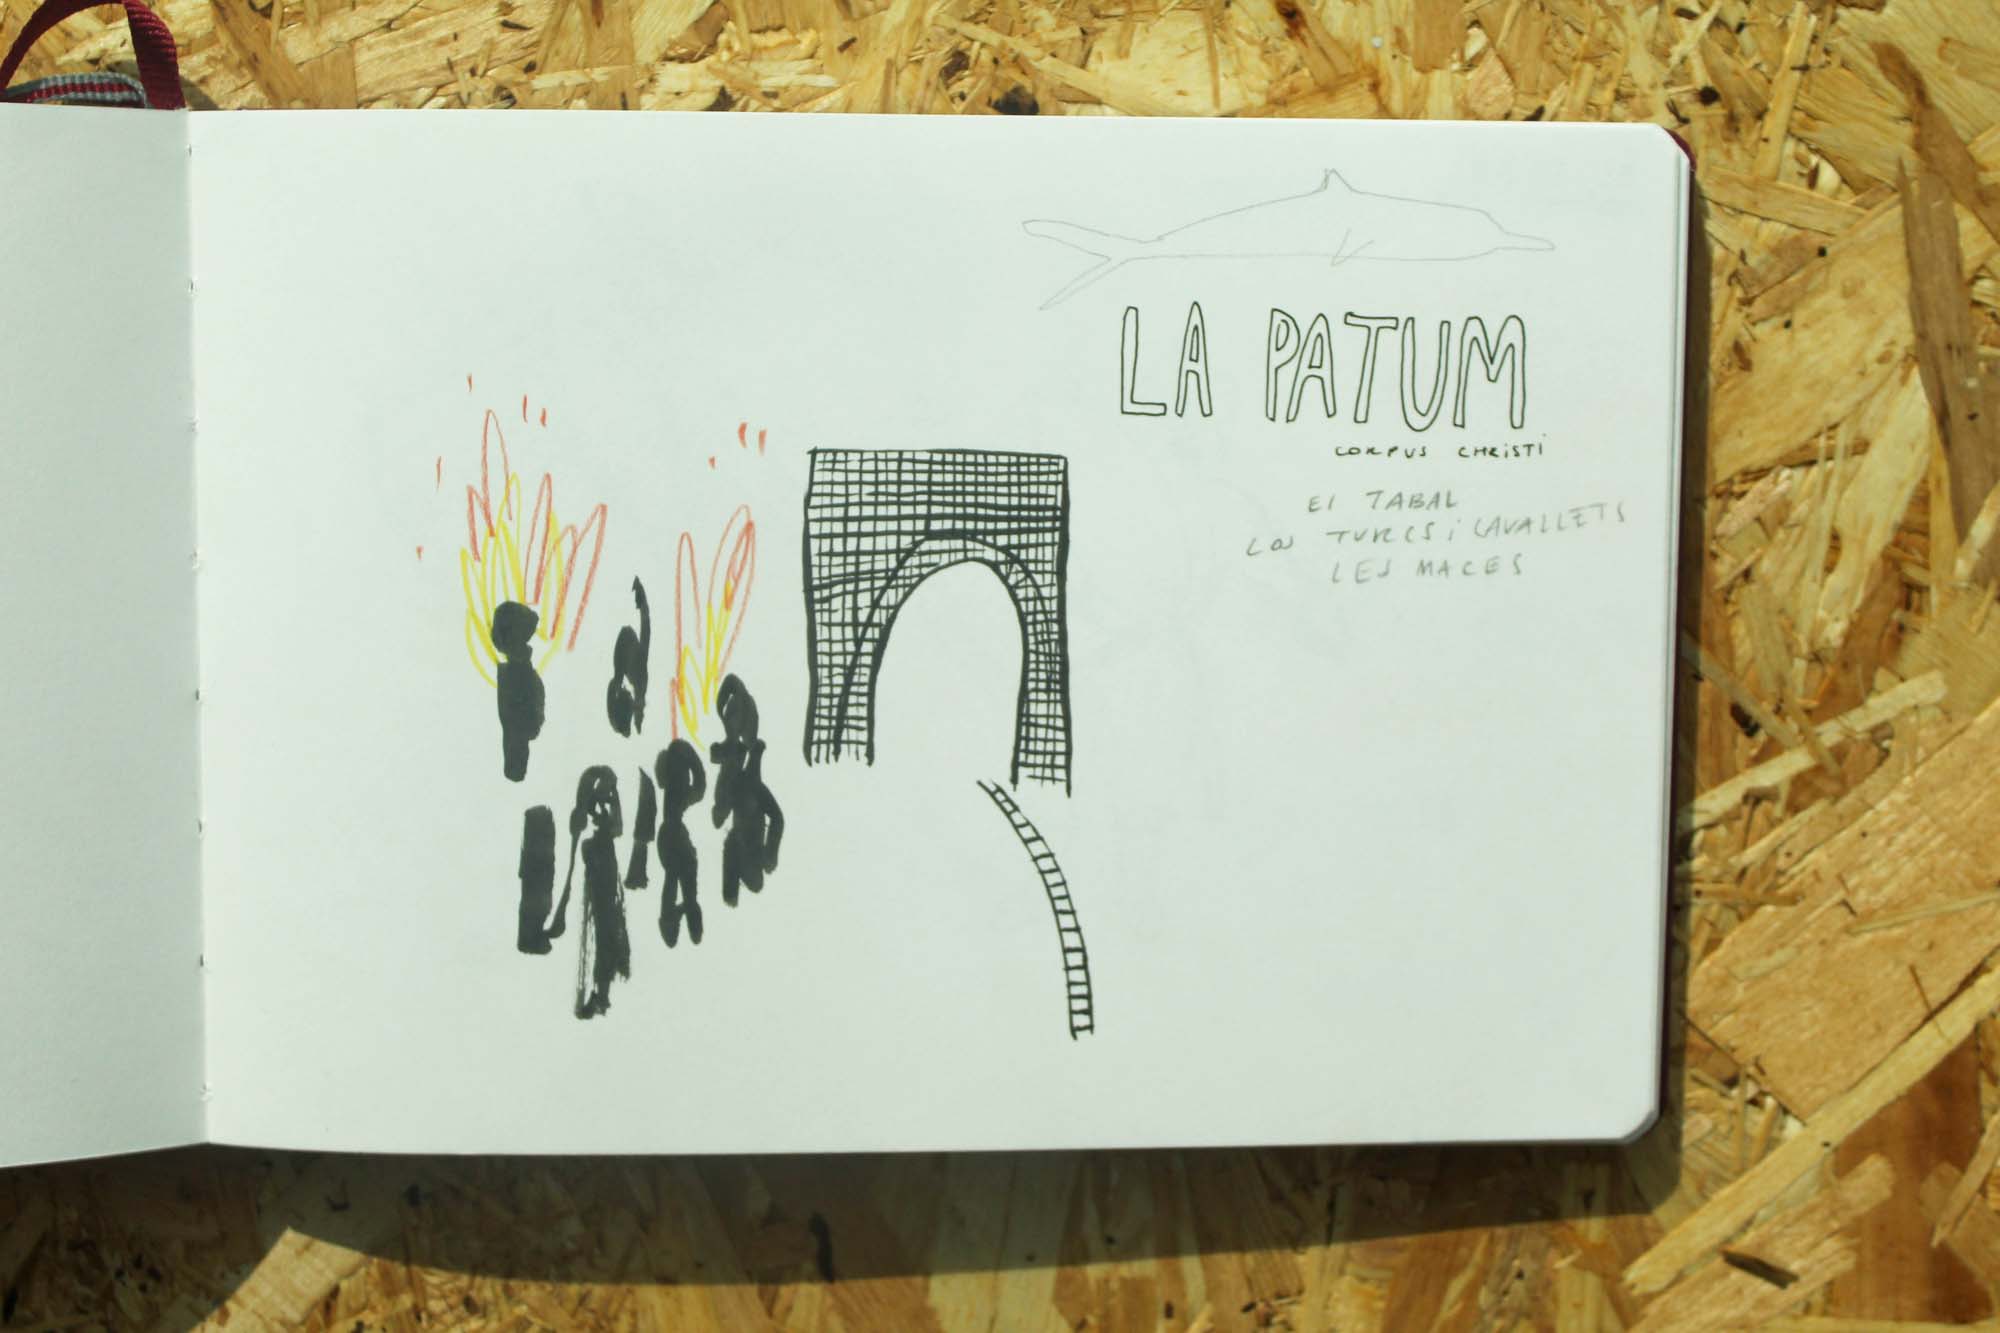 LA PATUM
CORPUS CHRISTI
El TABAL
TURCS i CAVALLETS
LES MACES